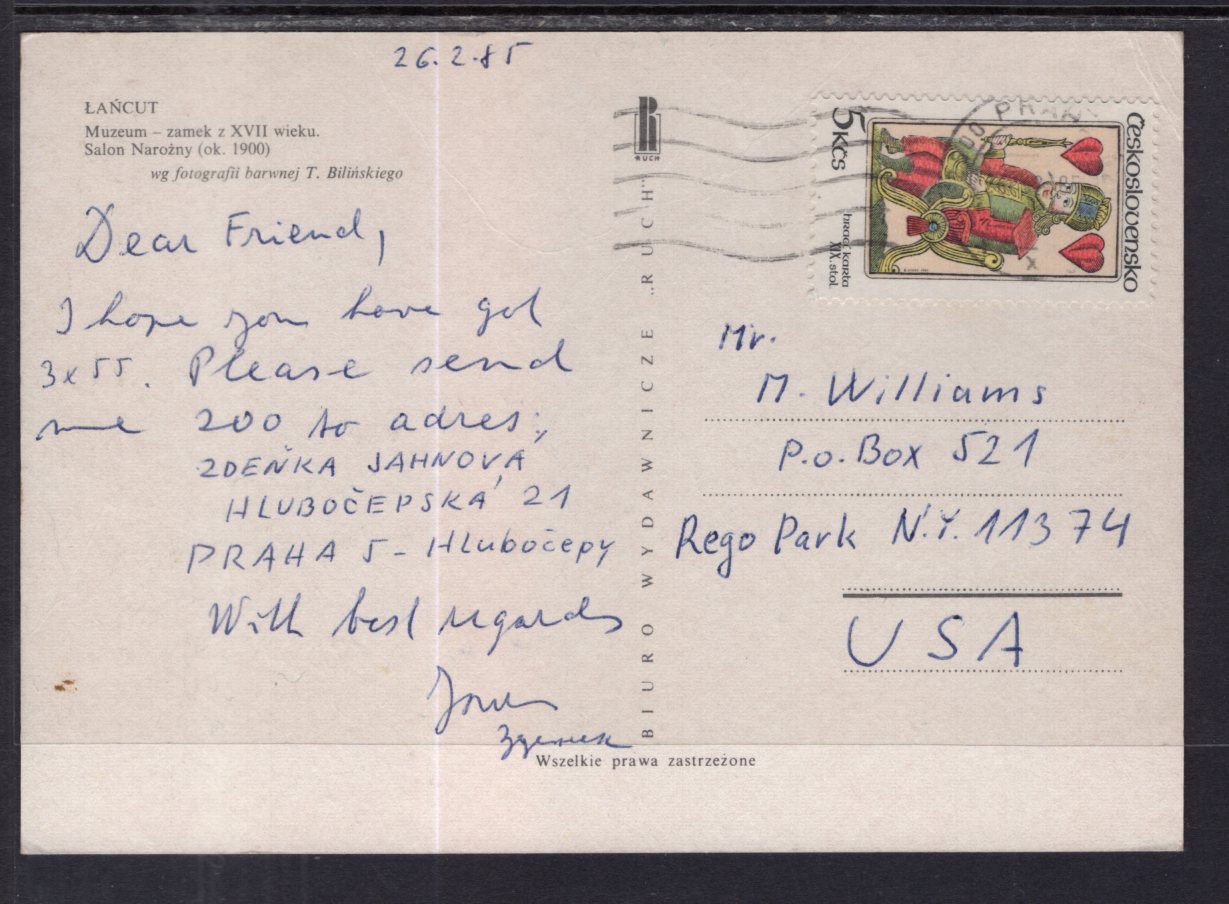 26.2.85
ŁAŃCUT
Muzeum – zamek z XVII wieku.
Salon Narożny (ok. 1900)
wg fotografii barwnej T. Bilińskiego
Dear Friend,
I hope you have got
3x55. Please send
me 200 to adres:
ZDEŇKA JAHNOVÁ
HLUBOČEPSKÁ 21
PRAHA 5 - Hlubočepy
With best regards
Wszelkie prawa zastrzeżone
RUCH
BIURO WYDAWNICZE „RUCH"
Československo
5 Kčs
hrací karta
XIX. stol.
Mr.
M. Williams
P.O. Box 521
Rego Park N.Y. 11374
USA